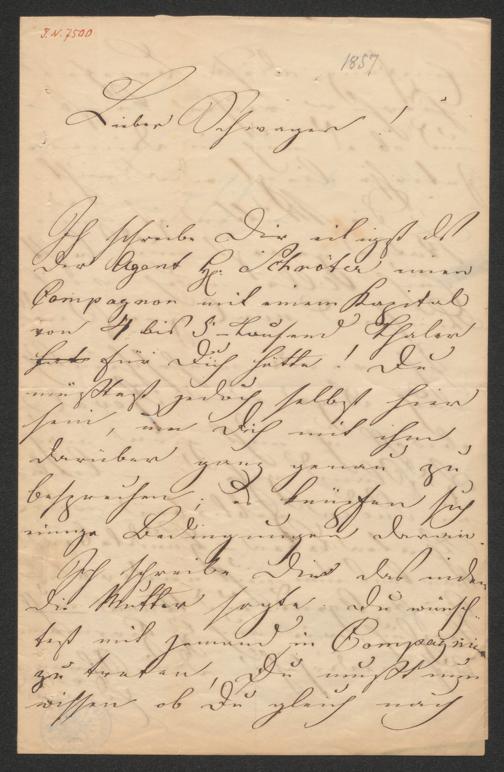 J.N. 7500
1857
Lieber Schwager!
Ich schreibe Dir eiligst ds
der Agent H. Schröter einen
Compagnon mit einem Kapital
von 4 bis 5 Tausend Thaler
hat für Dich hätte! Du
müßtest jedoch selbst hier
sein, um Dich mit ihm
darüber ganz genau zu
besprechen; es knüpfen sich
einige Bedingungen daran.
Ich schreibe Dir das indem
die Mutter sagte Du wünsch-
test mit jemand in Compagnie
zu treten, Du mußt nun
wissen ob Du gleich nach